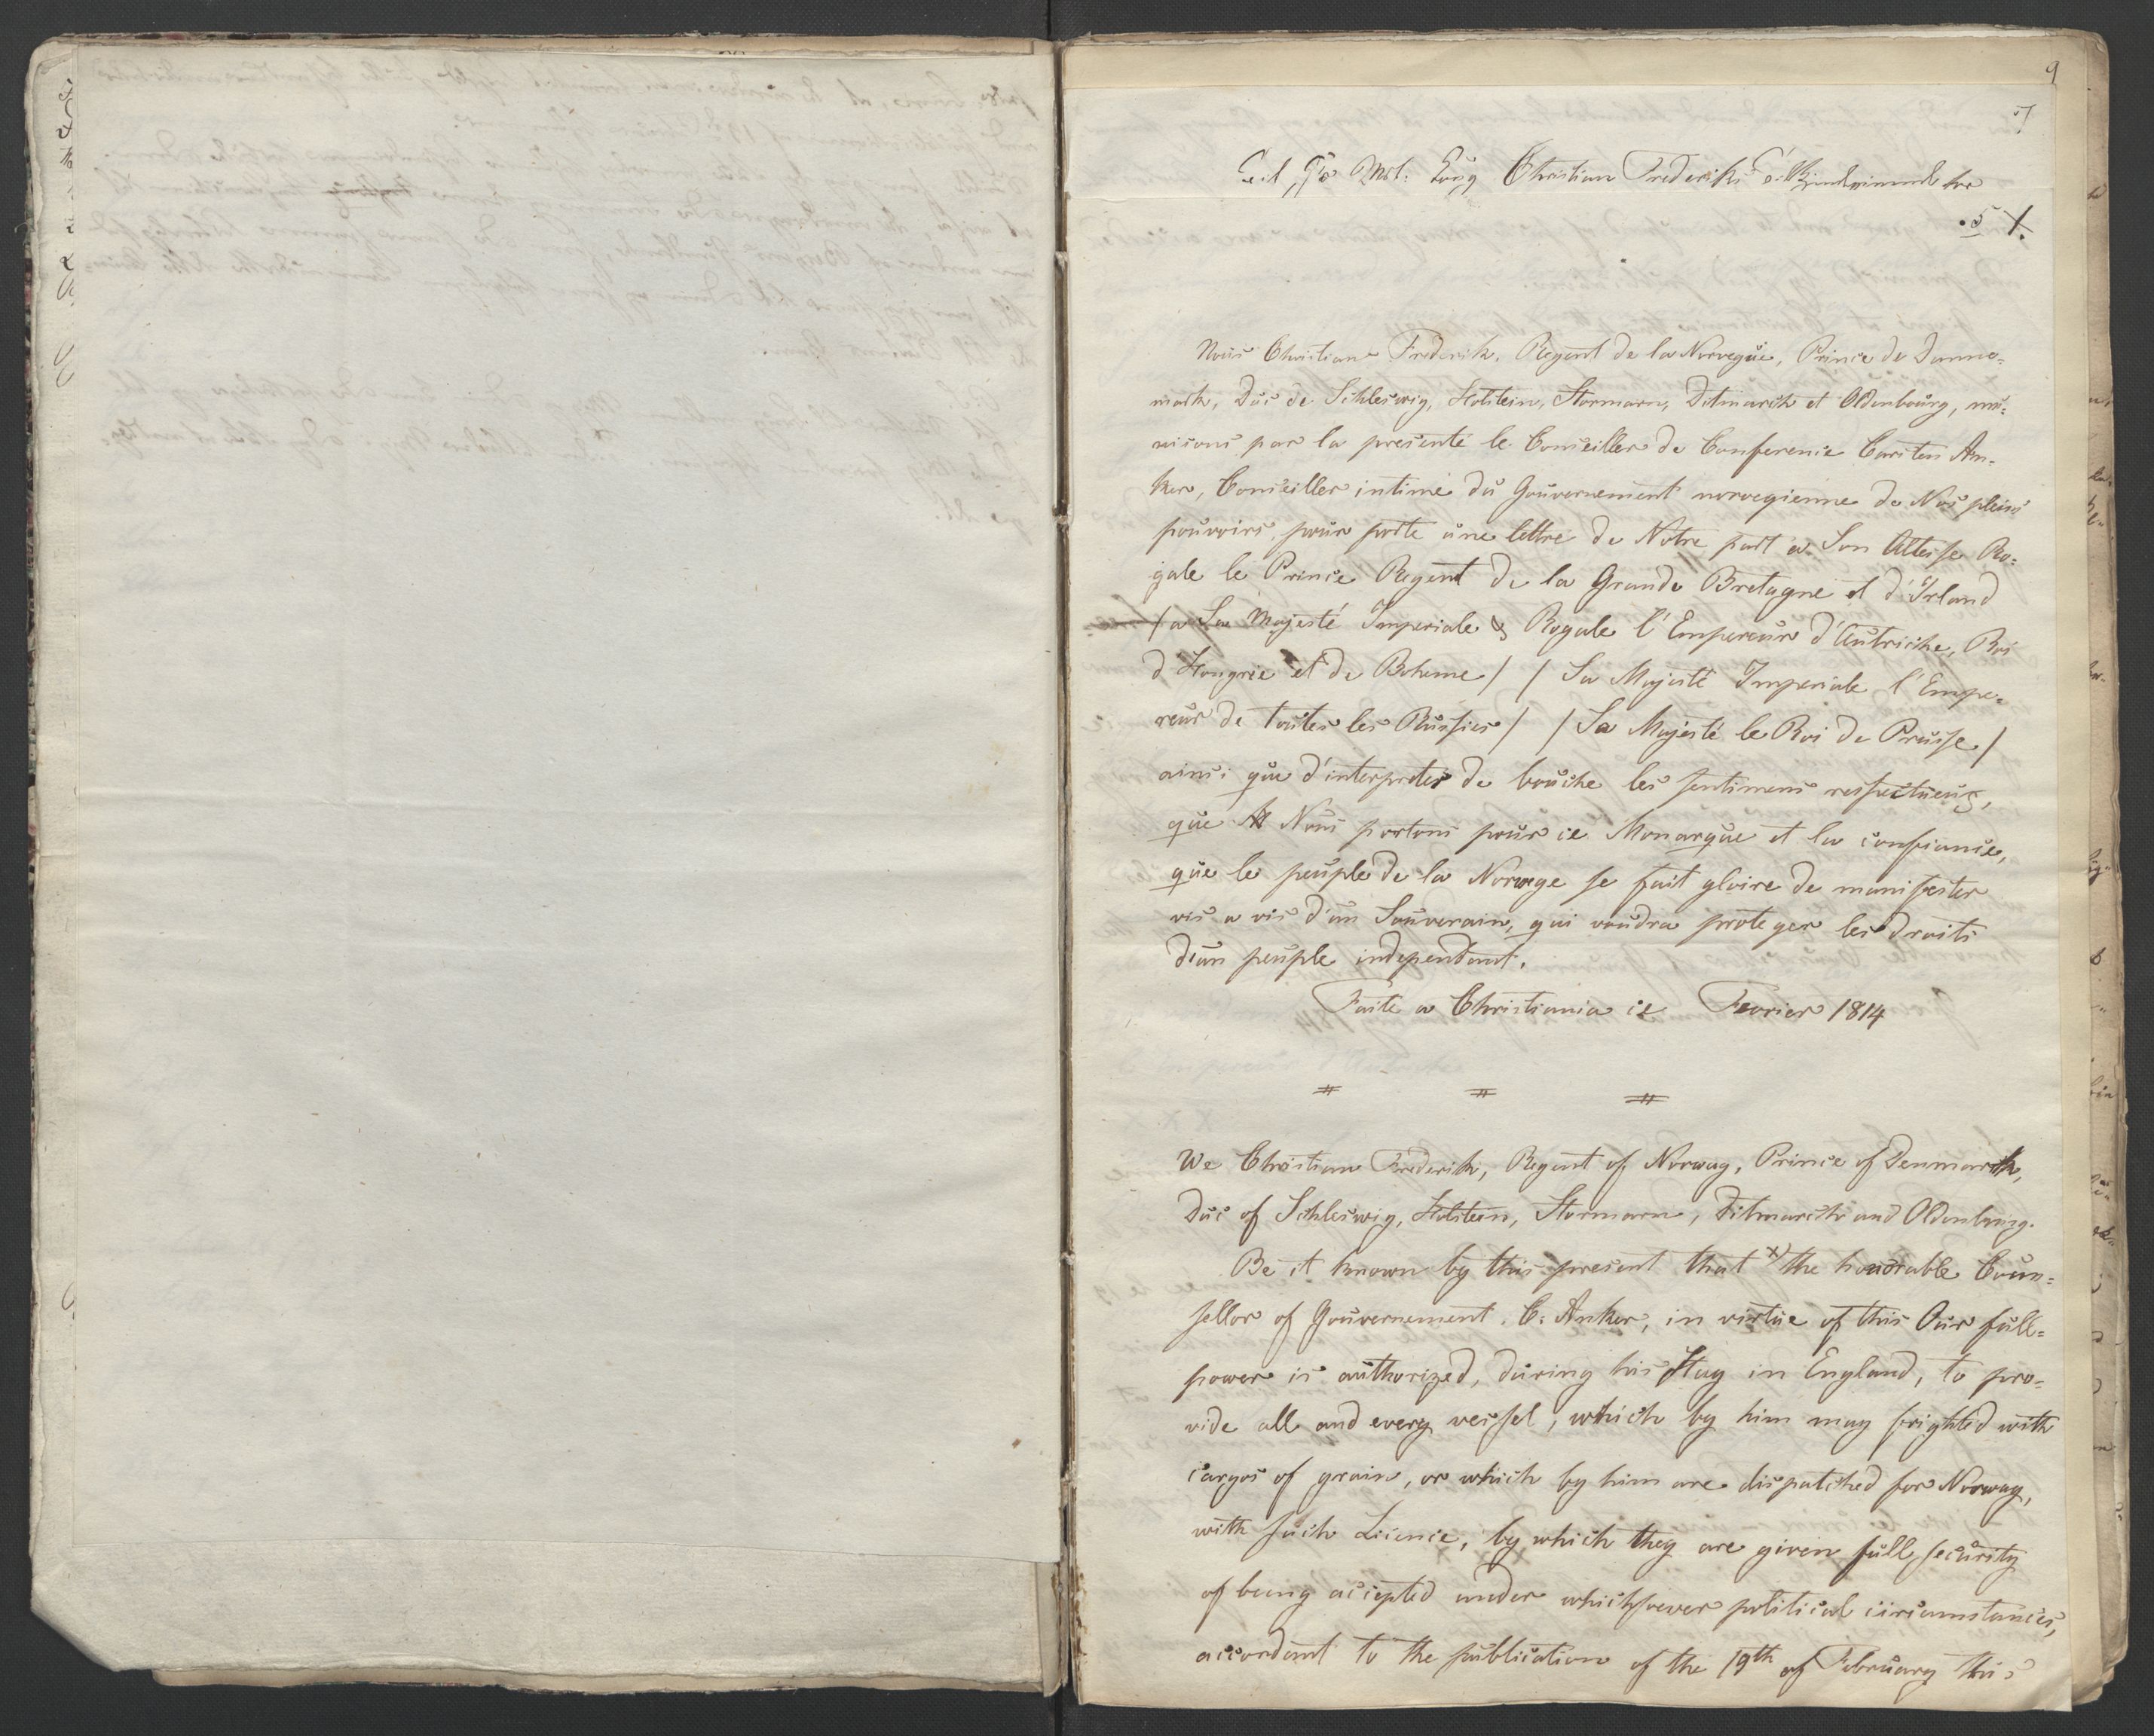 9
Christian Frederiks
Nous Christian Frederik, Regent de la Norvegue, Prince de Danne=
mark, Duc de Schleswig, Holstein, Stormarn, Ditmarsch et Oldenbourg, mu=
nisons par la presente le Conseiller de Conference Carsten An=
ker, Conseiller intime du Gouvernement norvegienne de Nos pleins
pouvoirs, pour porte une lettre de Notre part a Son Altesse Ro=
yale le Prince Regent de la Grande Bretagne et d'Irland
/ a Sa Majesté Imperiale & Royale l'Empereur d'Autriche, Roi
d'Hongrie et de Boheme / / Sa Majesté Imperiale l'Empe=
reur de toutes les Russies / / Sa Majesté le Roi de Prusse /
ainsi que d'interpreter de bouche les sentimens respectueux,
que Nous portons pour ce Monarque et la confiance,
que le peuple de la Norvege se fait gloire de manifester
vis a vis d'un Souverain, qui voudra proteger les droits
d'un peuple independant.
Faite a Christiania ce Fevrier 1814
We Christian Frederik, Regent of Norway, Prince of Denmark,
Duc of Schleswig, Holstein, Stormarn, Ditmarsch and Oldenburg.
Be it known by this present that x) the honorable Coun=
sellor of Gouvernement C: Anker, in virtue of this Our full=
power is authorized, during his Stay in England, to pro=
vide all and every vessel, which by him may frighted with
cargos of grain, or which by him are dispatched for Norway,
with such Licence, by which they are given full security
of being accepted under whichsoever political circumstances,
accordant to the publication of the 19th of February this